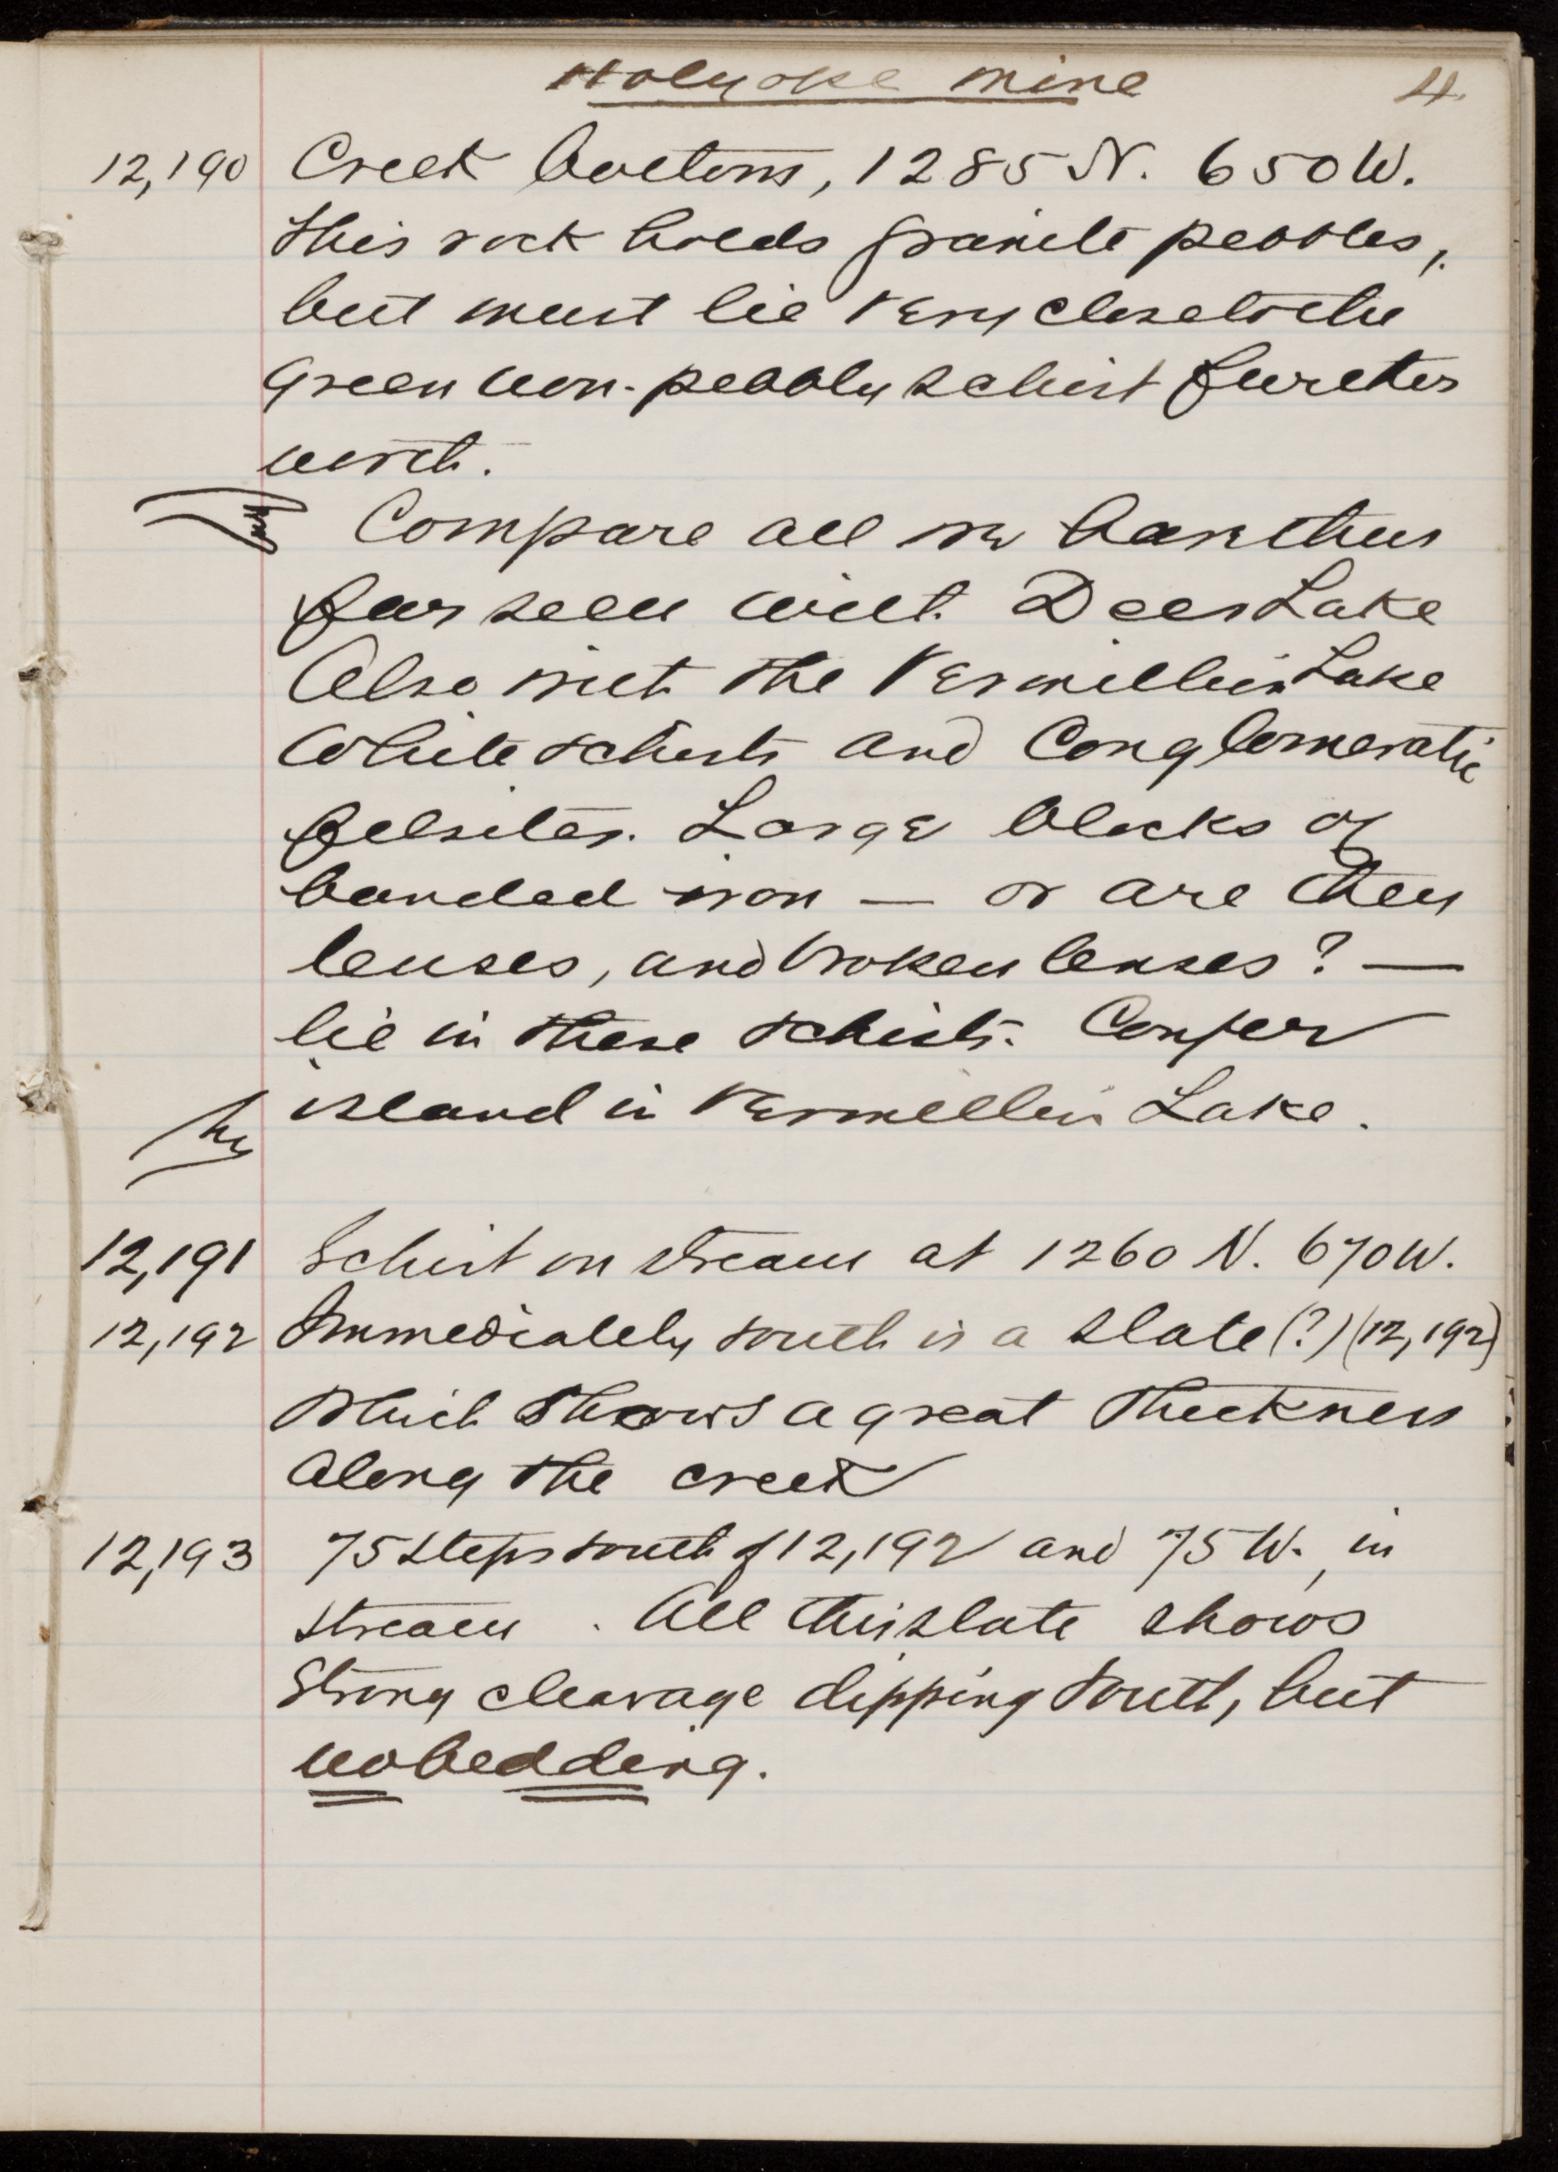 Holyoke mine 4.
12,190 Creek bottom, 1285 N. 650 W.
This rock holds granite pebbles,
but must lie very close to the
green non-pebbly schist further
north.
Compare all we have thus
far seen with Deer Lake
Also with the Vermillion Lake
white schists and Conglomeratic
felsites. Large blocks of
banded iron — or are they
lenses, and broken lenses? —
lie in these schists. Confer
island in Vermillion Lake.
12,191 Schist on stream at 1260 N. 670 W.
12,192 Immediately south is a slate (?) (12,192)
which shows a great thickness
along the creek
12,193 75 steps south of 12,192 and 75 W., in
stream. All this slate shows
strong cleavage dipping south, but
no bedding.